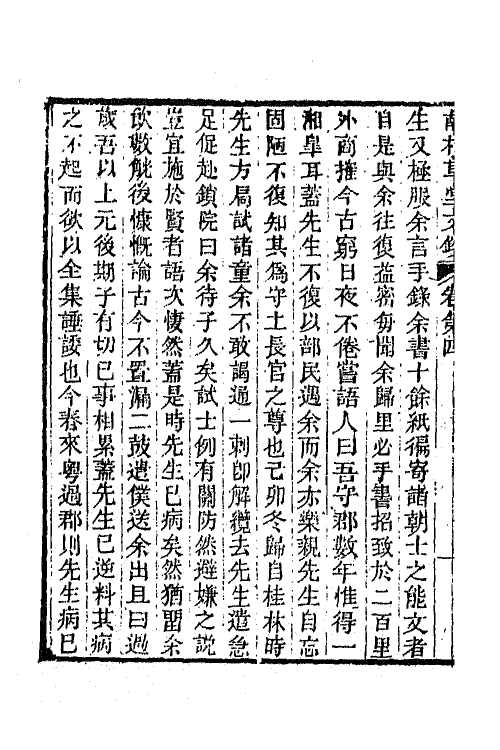 草堂文錄 卷第四
生又極服余言手錄余書十餘紙徧寄諸朝士之能文者
自是與余往復益密每聞余歸里必手書招致於二百里
外商搉今古窮日夜不倦嘗語人曰吾守郡數年惟得一
湘皐耳蓋先生不復以部民遇余而余亦樂親先生自忘
固陋不復知其爲守土長官之尊也己卯冬歸自桂林時
先生方局試諸童余不敢謁通一刺卽解纜去先生遣急
足促赴鎖院曰余待子久矣試士例有關防然避嫌之説
豈宜施於賢者語次悽然蓋是時先生已病矣然猶畱余
飮數觥後慷慨論古今不置漏二鼓遣僕送余出且曰過
歲吾以上元後期子有切己事相累蓋先生已逆料其病
之不起而欲以全集諈諉也今春來粵過郡則先生病已